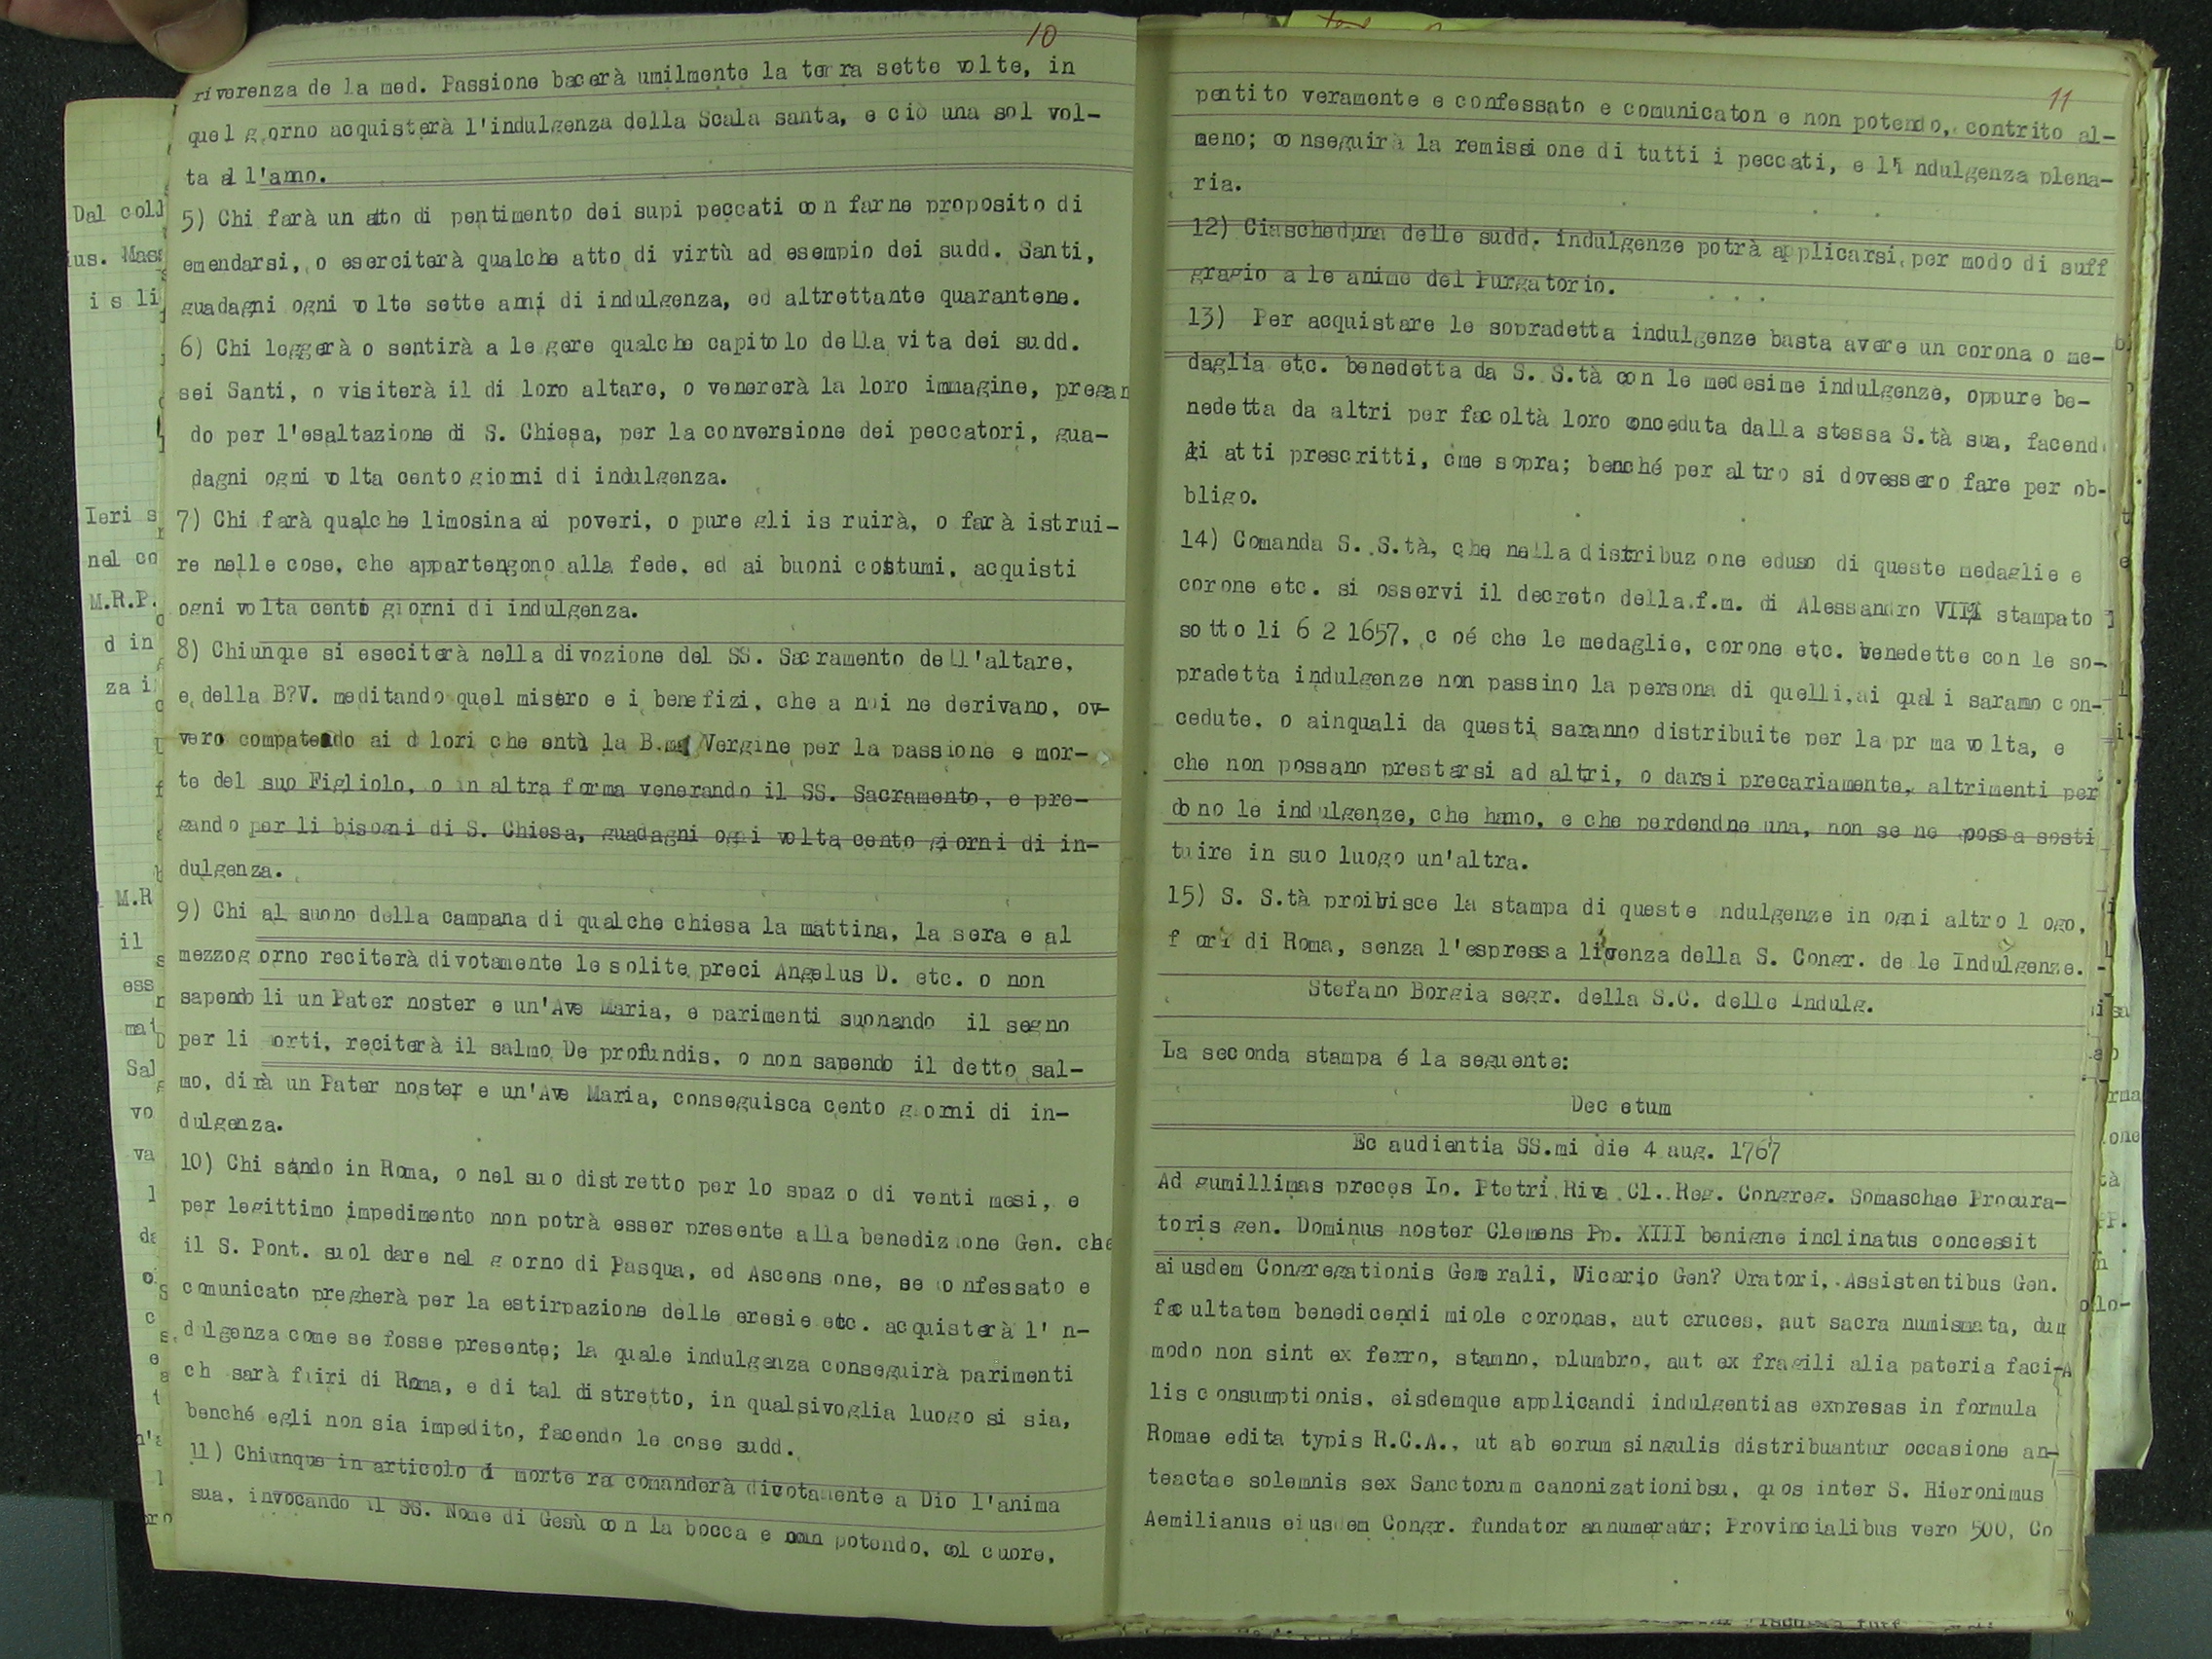 10
riverenza de la med. Passione bacerà umilmente la terra sette volte, in
quel g orno acquisterà l'indulgenza della Scala santa, e ciò una sol vol-
ta all'anno.
5) Chi farà un atto di pentimento dei supi peccati con farne proposito di
emendarsi, o eserciterà qualche atto di virtù ad esempio dei sudd. Santi,
guadagni ogni volte sette anni di indulgenza, ed altrettante quarantene.
6) Chi leggerà o sentirà a le gere qualche capitolo della vita dei sudd.
sei Santi, o visiterà il di loro altare, o venererà la loro immagine, pregan
do per l'esaltazione di S. Chiesa, per la conversione dei peccatori, gua-
dagni ogni volta cento giorni di indulgenza.
7) Chi farà qualche limosina ai poveri, o pure gli is ruirà, o farà istrui-
re nelle cose, che appartengono alla fede, ed ai buoni costumi, acquisti
ogni volta cento giorni di indulgenza.
8) Chiunque si eseciterà nella divozione del SS. Sacramento dell'altare,
e della B?V. meditando quel mistero e i benefizi, che a noi ne derivano, ov-
vero compatendo ai d lori che entì la B.ma Vergine per la passione e mor-
te del suo Figliolo, o in altra forma venerando il SS. Sacramento, e pre-
gando per li bisogni di S. Chiesa, guadagni ogni volta cento giorni di in-
dulgenza.
9) Chi al suono della campana di qualche chiesa la mattina, la sera e al
mezzog orno reciterà divotamente le solite preci Angelus D. etc. o non
sapendo li un Pater noster e un'Ave Maria, e parimenti suonando il segno
per li orti, reciterà il salmo De profundis, o non sapendo il detto sal-
mo, dirà un Pater noster e un'Ave Maria, conseguisca cento giorni di in-
dulgenza.
10) Chi stando in Roma, o nel suo distretto per lo spaz o di venti mesi, e
per legittimo impedimento non potrà esser presente alla benedizione Gen. che
il S. Pont. suol dare nel g orno di Pasqua, ed Ascens one, se confessato e
comunicato pregherà per la estirpazione delle eresie etc. acquisterà l' n-
dulgenza come se fosse presente; la quale indulgenza conseguirà parimenti
ch sarà fuiri di Roma, e di tal distretto, in qualsivoglia luogo si sia,
benché egli non sia impedito, facendo le cose sudd.
11) Chiunque in articolo di morte ra comanderà divotamente a Dio l'anima
sua, invocando il SS. Nome di Gesù con la bocca e non potendo, col cuore,
11
pentito veramente e confessato e comunicaton e non potendo, contrito al-
meno; conseguirà la remissione di tutti i peccati, e l'indulgenza plena-
ria.
12) Ciascheduna delle sudd. indulgenze potrà applicarsi per modo di suff
gragio a le anime del Purgatorio.
13) Per acquistare le sopradetta indulgenze basta avere un corona o me-
daglia etc. benedetta da S. S.tà con le medesime indulgenze, oppure be-
nedetta da altri per facoltà loro conceduta dalla stessa S.tà sua, facend
li atti prescritti, cme sopra; benché per altro si dovessero fare per ob-
bligo.
14) Comanda S. S.tà, che nella distribuz one eduso di queste medaglie e
corone etc. si osservi il decreto della f.m. di Alessandro VII stampato
sotto li 6 2 1657, c oé che le medaglie, corone etc. benedette con le so-
pradetta indulgenze non passino la persona di quelli,ai quali saranno con-
cedute, o ainquali da questi saranno distribuite per la pr ma volta, e
che non possano prestarsi ad altri, o darsi precariamente, altrimenti per
dono le indulgenze, che hanno, e che perdendne una, non se ne possa sosti
tuire in suo luogo un'altra.
15) S. S.tà proibisce la stampa di queste ndulgenze in ogni altro l ogo,
f ori di Roma, senza l'espressa licenza della S. Congr. de le Indulgenze.
Stefano Borgia segr. della S.C. delle Indulg.
La seconda stampa é la seguente:
Dec etum
Ec audientia SS.mi die 4 aug. 1767
Ad gumillimas preces Io. Ptetri Riva Cl. Reg. Congreg. Somaschae Procura-
toris gen. Dominus noster Clemens Pp. XIII benigne inclinatus concessit
aiusdem Congregationis Generali, Vicario Gen? Oratori, Assistentibus Gen.
facultatem benedicendi miole coronas, aut cruces, aut sacra numismata, dum
modo non sint ex ferro, stamno, plumbro, aut ex fragili alia pateria faci-
lis consumptionis, eisdemque applicandi indulgentias expresas in formula
Romae edita typis R.C.A., ut ab eorum singulis distribuantur occasione an-
teactae solemnis sex Sanctorum canonizationibsu, quos inter S. Hieronimus
Aemilianus eiusdem Congr. fundator annumeratur; Provincialibus vero 500, Co